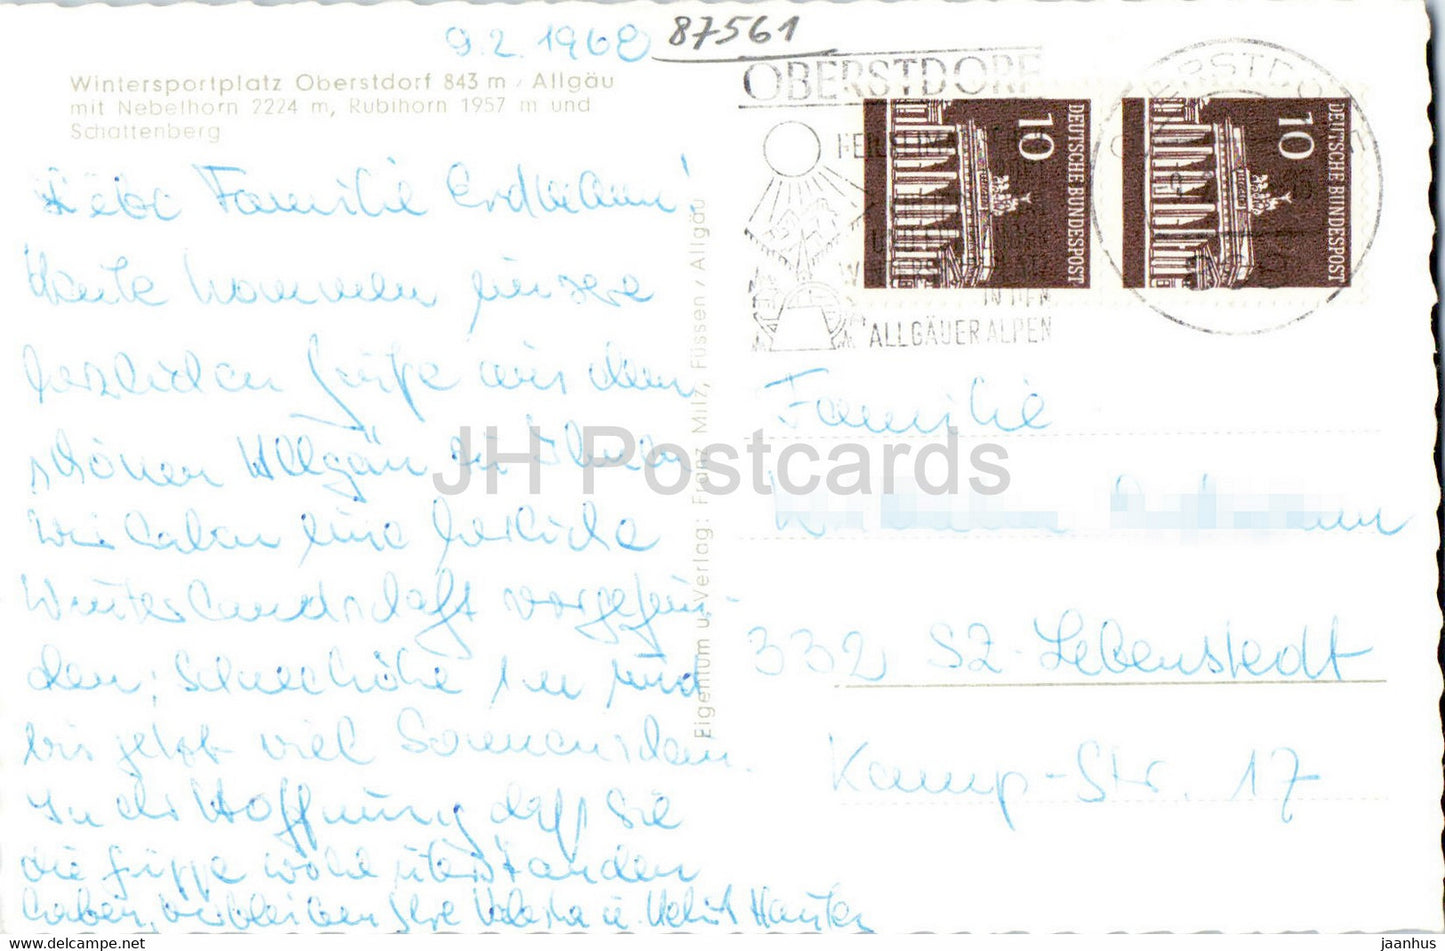 9.2.1968
87561
Wintersportplatz Oberstdorf 843 m / Allgäu
mit Nebelhorn 2224 m, Rubihorn 1957 m und
Schattenberg
Liebe Familie Erdmann!
Heute kommen unsere
herzlichen Grüße aus dem
schönen Allgäu zu Ihnen.
Wir haben eine herrliche
Winterlandschaft vorgefun-
den; Schneehöhe 1 m und
bis jetzt viel Sonnenschein.
In der Hoffnung daß Sie
die Grippe wohl überstanden
haben, verbleiben Ihre u. Helmut
Eigentum u. Verlag: Franz Milz, Füssen / Allgäu
OBERSTDORF
IN DEN
ALLGÄUER ALPEN
OBERSTDORF
10
DEUTSCHE BUNDESPOST
10
DEUTSCHE BUNDESPOST
Familie
332 SZ-Lebenstedt
Kamp-Str. 17
JH Postcards
www.delcampe.net
jaanhus